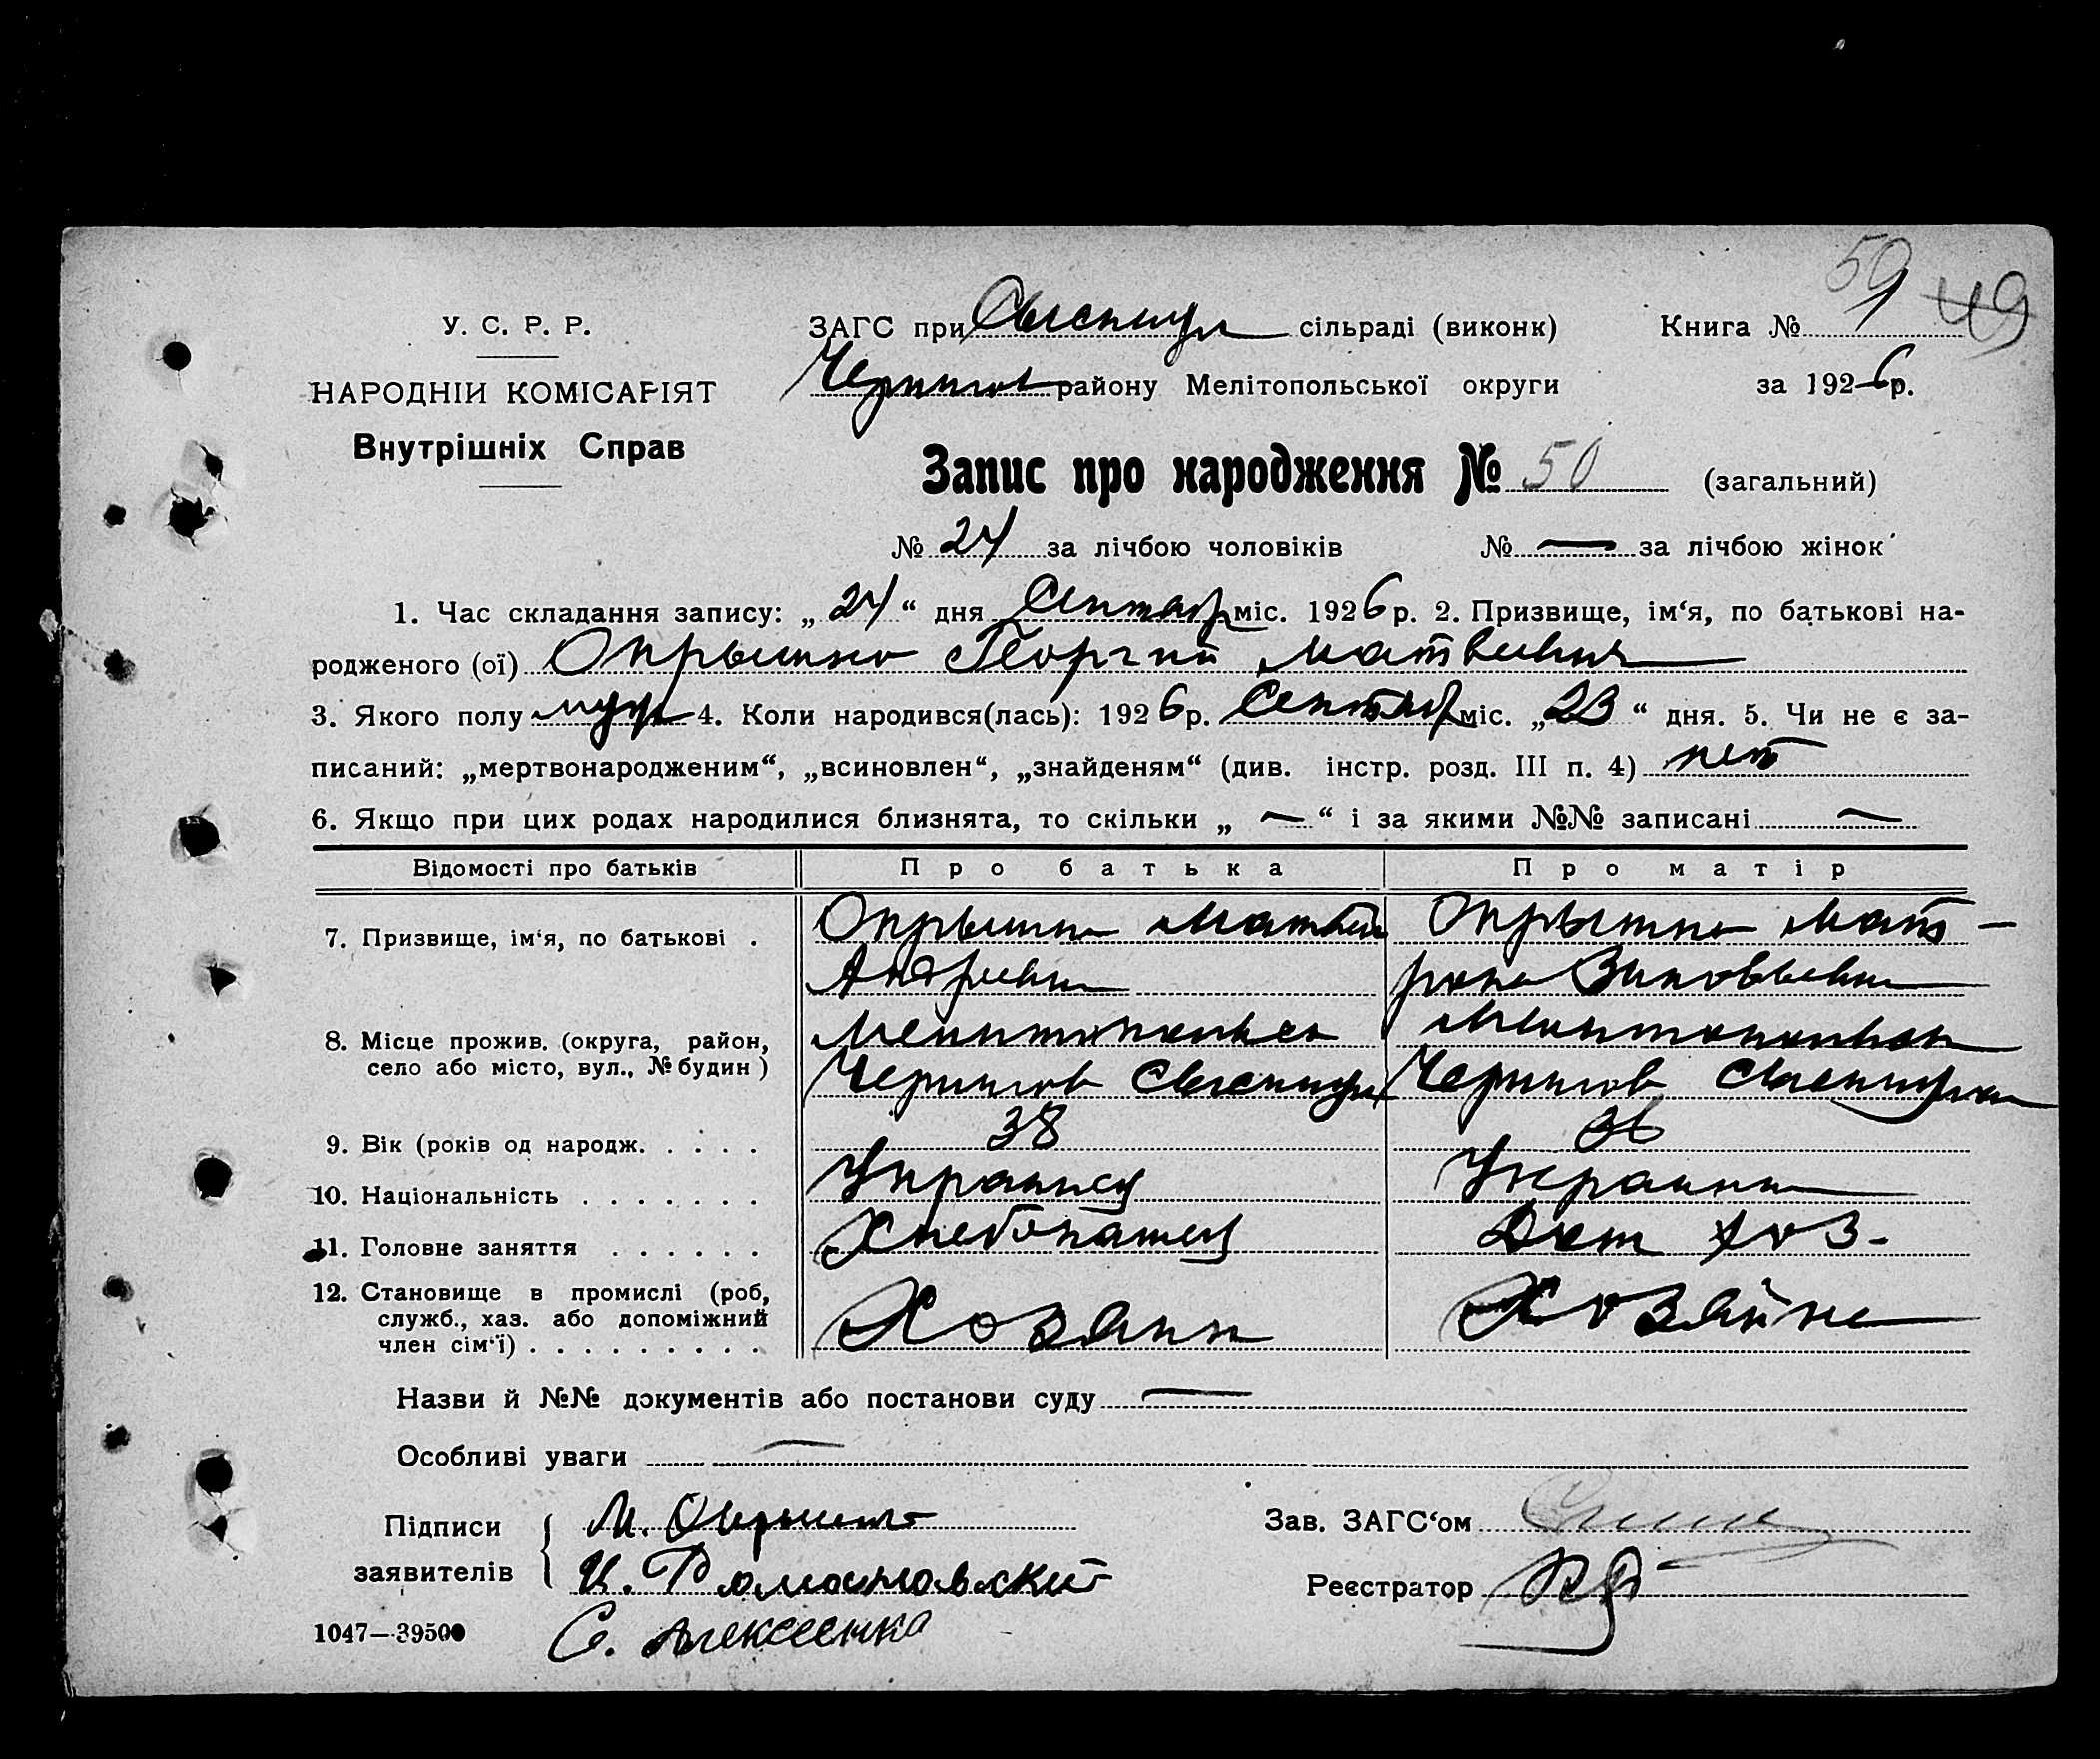 59 49
У. С. Р. Р.
ЗАГС при сільраді (виконк) Книга №
НАРОДНІЙ КОМІСАРІЯТ
Чернигов району Мелітопольської округи за 1926 р.
Внутрішніх Справ
Запис про народження № 50 (загальний)
№ 24 за лічбою чоловіків № — за лічбою жінок
1. Час складання запису: „24“ дня Сентяб міс. 1926 р. 2. Призвище, ім‘я, по батькові на-
родженого (ої) Опрышко Георгий Матвеевич
3. Якого полу муж 4. Коли народився(лась): 1926 р. Сентяб міс. „23“ дня. 5. Чи не є за-
писаний: „мертвонародженим“, „всиновлен“, „знайденям“ (див. інстр. розд. III п. 4) нет
6. Якщо при цих родах народилися близнята, то скільки „ — “ і за якими №№ записані —
Відомості про батьків Про батька Про матір
7. Призвище, ім‘я, по батькові . Опрышко Матвей Опрышко Мат-
Андреевич рона Зиновьевна
8. Місце прожив. (округа, район, Мелитопольск Мелитопольск
село або місто, вул., № будин) Чернигов Чернигов
9. Вік (років од народж. . . . . 38 36
10. Національність . . . . . . . Украинец Украинка
11. Головне заняття . . . . . . Хлебопашец Дом хоз-
12. Становище в промислі (роб, служб., хаз. або допоміжний член сім‘ї) . . . . . . . . . Хозяин Хозяйка
Назви й №№ документів або постанови суду —
Особливі уваги —
Підписи М. Опрышко Зав. ЗАГС‘ом
заявителів И. Романовский Реєстратор
1047—39500 С. Алексеенко